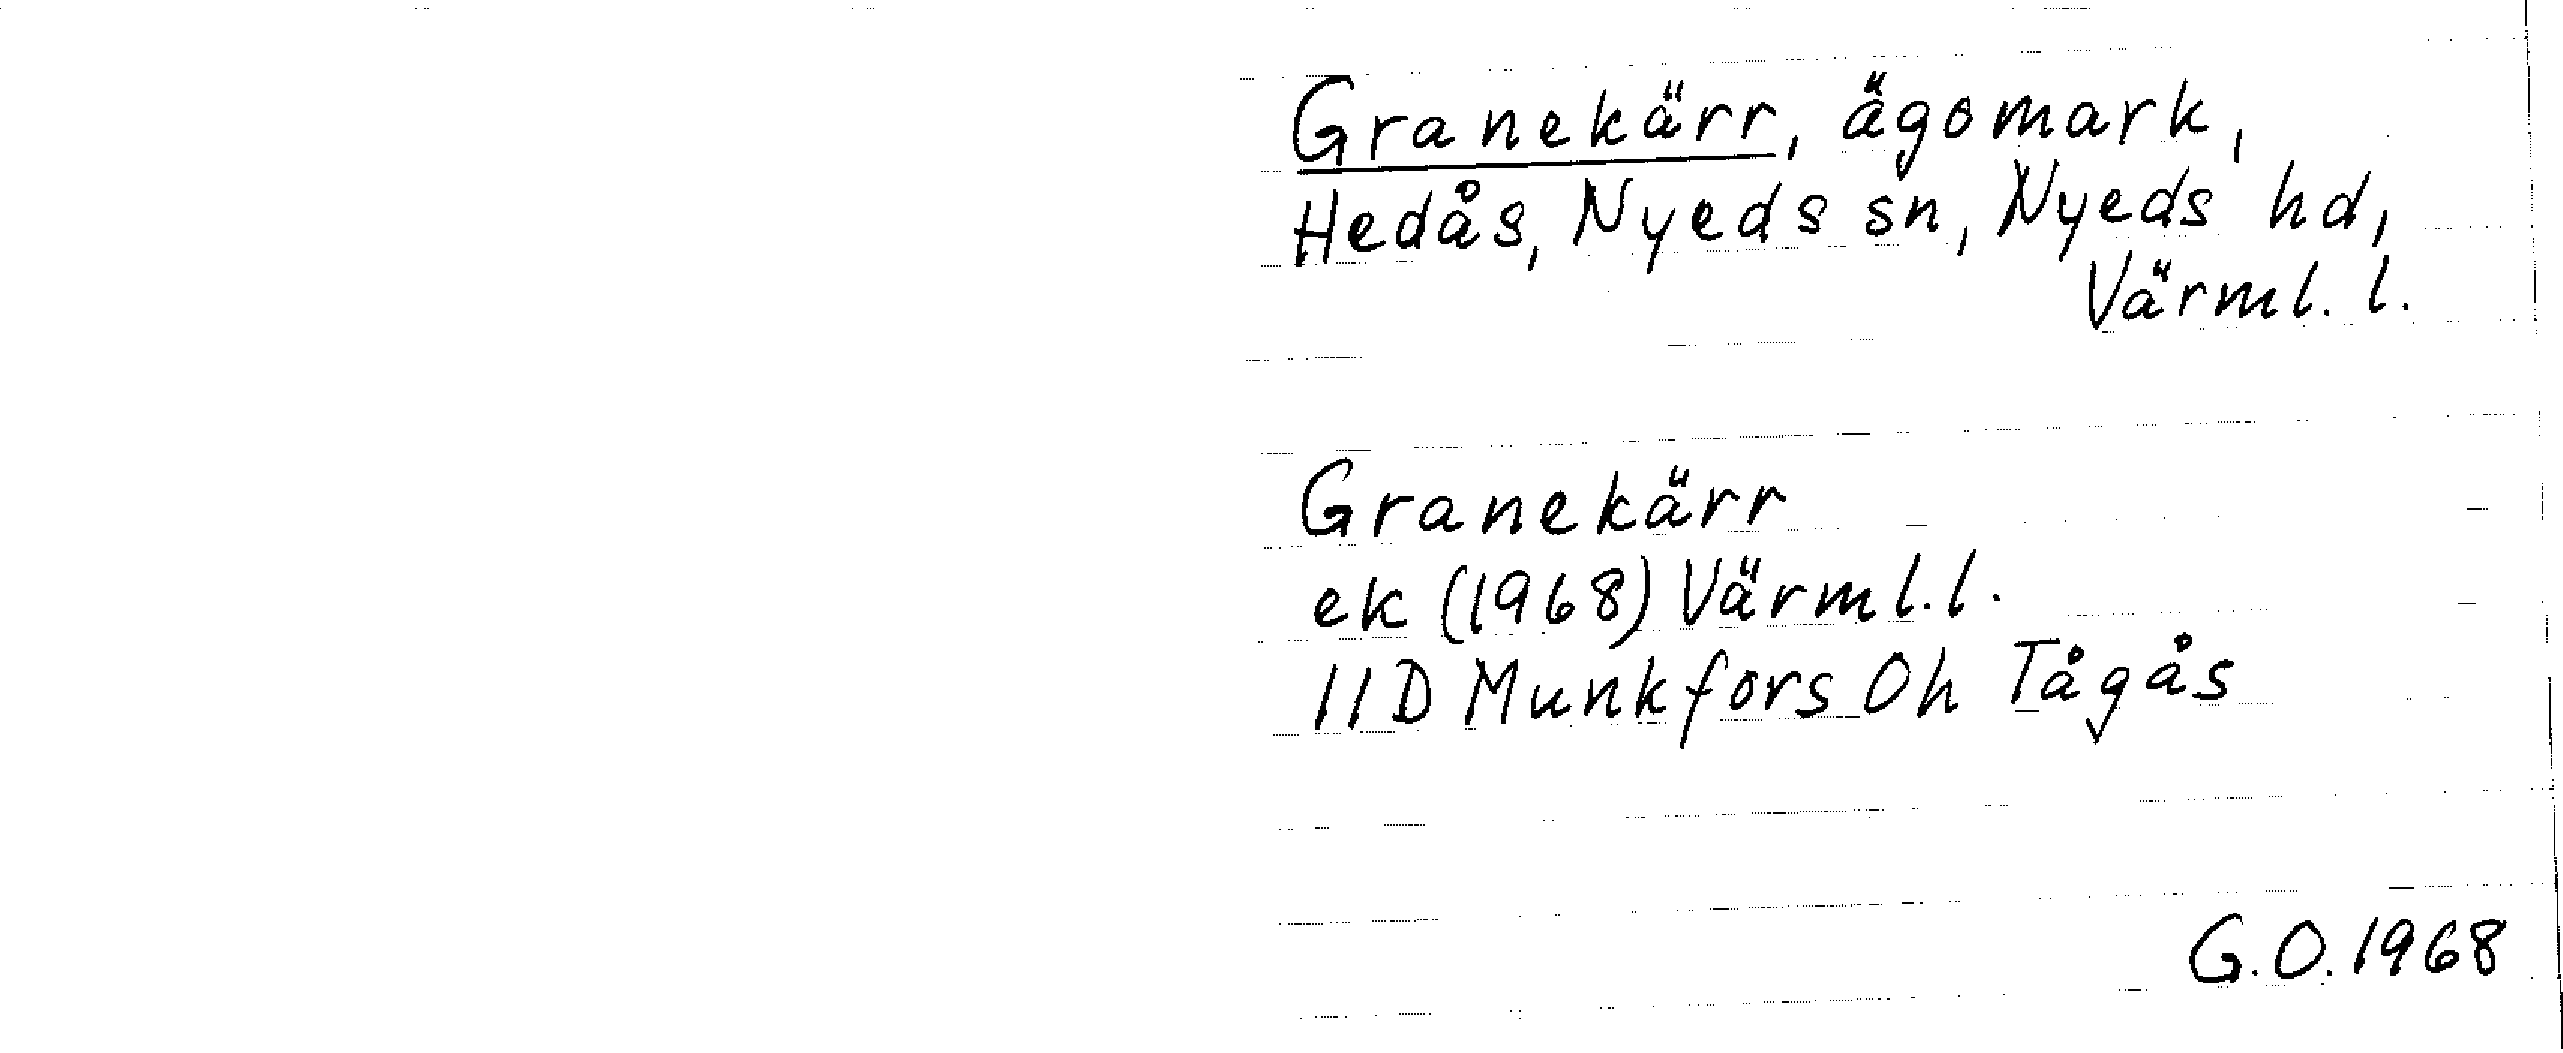 Granekärr, ägomark,
Hedås, Nyeds sn, Nyeds hd,
Värml. l.
Granekärr
ek (1968) Värml. l.
11D Munkfors 0h Tågås
G.O. 1968